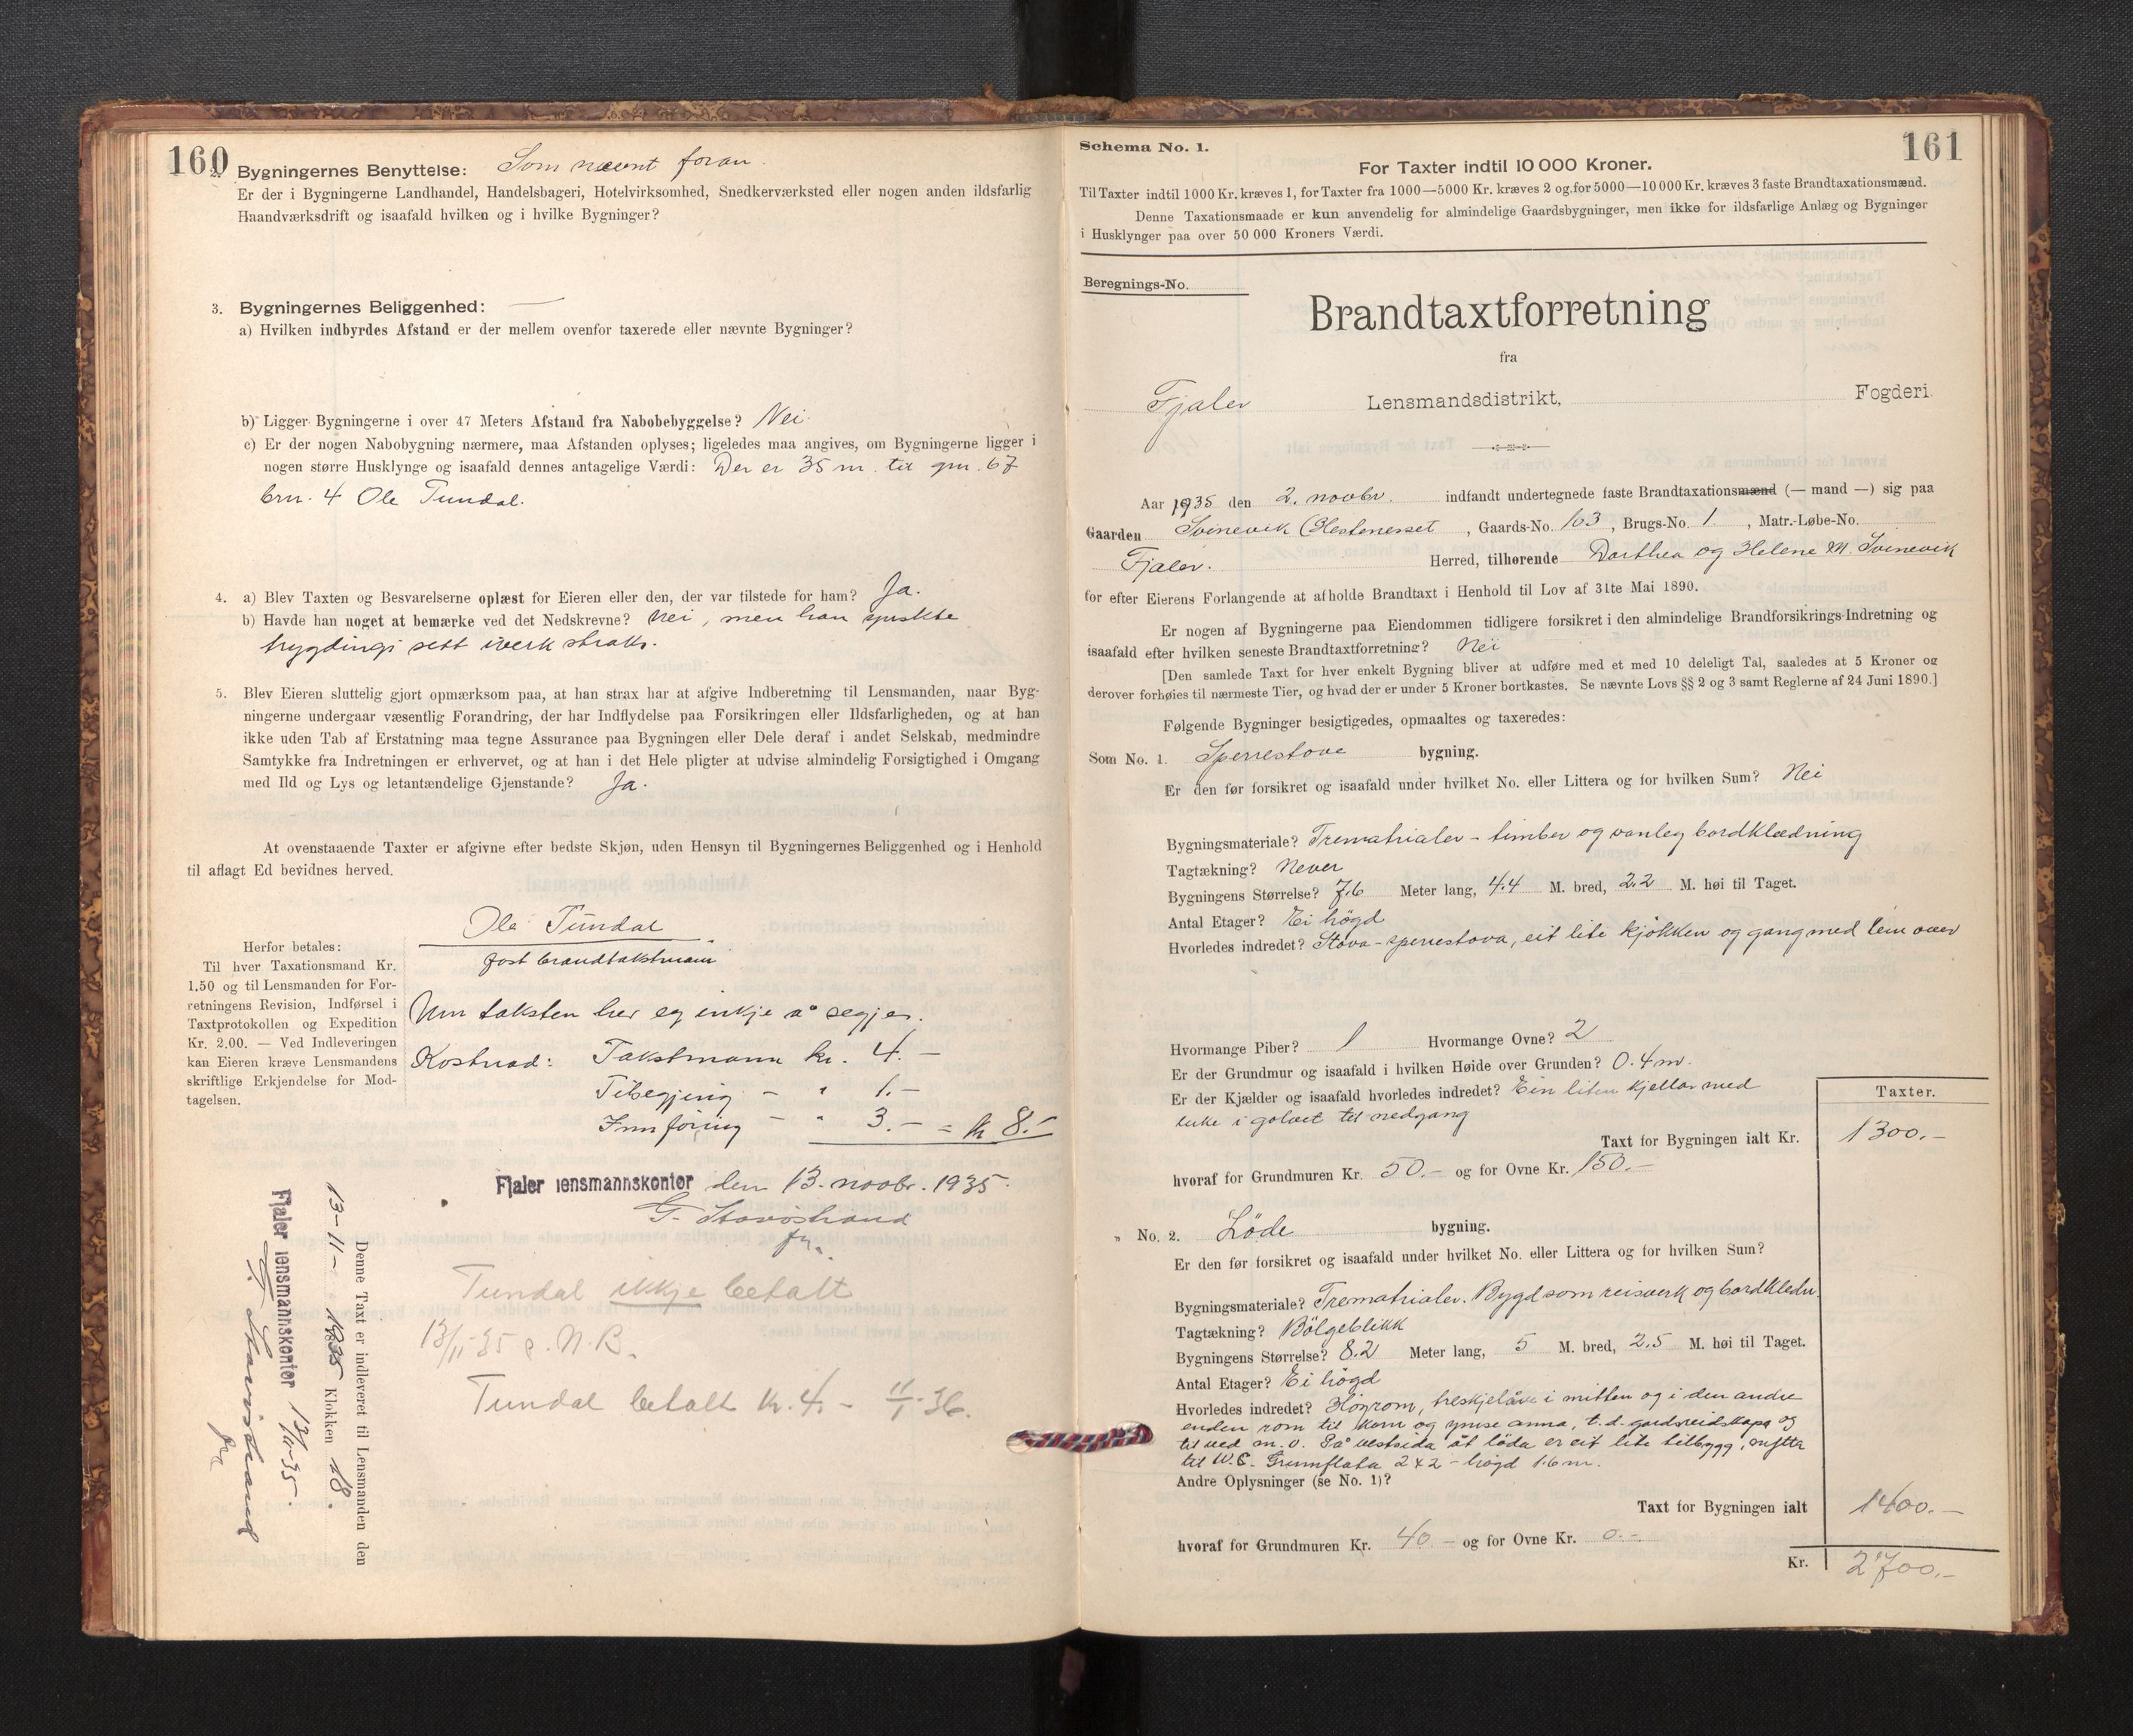 160
2. Bygningernes Benyttelse: Som nævnt foran.
Er der i Bygningerne Landhandel, Handelsbageri, Hotelvirksomhed, Snedkerværksted eller nogen anden ildsfarlig
Haandværksdrift og isaafald hvilken og i hvilke Bygninger?
3. Bygningernes Beliggenhed: —
a) Hvilken indbyrdes Afstand er der mellem ovenfor taxerede eller nævnte Bygninger?
b) Ligger Bygningerne i over 47 Meters Afstand fra Nabobebyggelse? Nei.
c) Er der nogen Nabobygning nærmere, maa Afstanden oplyses; ligeledes maa angives, om Bygningerne ligger i
nogen større Husklynge og isaafald dennes antagelige Værdi: Der er 35 m. til gnr. 67
brn. 4 Ole Tundal.
4. a) Blev Taxten og Besvarelserne oplæst for Eieren eller den, der var tilstede for ham? Ja.
b) Havde han noget at bemærke ved det Nedskrevne? Nei, men han ynskte
trygdingi sett iverk straks.
5. Blev Eieren sluttelig gjort opmærksom paa, at han strax har at afgive Indberetning til Lensmanden, naar Byg-
ningerne undergaar væsentlig Forandring, der har Indflydelse paa Forsikringen eller Ildsfarligheden, og at han
ikke uden Tab af Erstatning maa tegne Assurance paa Bygningen eller Dele deraf i andet Selskab, medmindre
Samtykke fra Indretningen er erhvervet, og at han i det Hele pligter at udvise almindelig Forsigtighed i Omgang
med Ild og Lys og letantændelige Gjenstande? Ja.
At ovenstaaende Taxter er afgivne efter bedste Skjøn, uden Hensyn til Bygningernes Beliggenhed og i Henhold
til aflagt Ed bevidnes herved.
Ole Tundal
fast brandtakstmann
Herfor betales:
Til hver Taxationsmand Kr.
1.50 og til Lensmanden for For-
retningens Revision, Indførsel i
Taxtprotokollen og Expedition
Kr. 2.00. — Ved Indleveringen
kan Eieren kræve Lensmandens
skriftlige Erkjendelse for Mod-
tagelsen.
Um taksten her eg inkje å segja.
Kostnad: Takstmann kr. 4.-
Tilsegjing - " 1.-
Innføring - " 3.- = kr 8.-
Fjaler lensmannskontor den 13. novbr. 1935.
G. Stavøstrand
fm.
Tundal ikkje betalt
13/11-35 e. N. B.
Tundal betalt kr. 4.- 11/1-36.
Denne Taxt er indleveret til Lensmanden den
13-11- 1935 Klokken 18.
Fjaler lensmannskontor 13/11-35.
G. Stavøstrand
fm
161
Schema No. 1.
For Taxter indtil 10 000 Kroner.
Til Taxter indtil 1000 Kr. kræves 1, for Taxter fra 1000—5000 Kr. kræves 2 og for 5000—10 000 Kr. kræves 3 faste Brandtaxationsmænd.
Denne Taxationsmaade er kun anvendelig for almindelige Gaardsbygninger, men ikke for ildsfarlige Anlæg og Bygninger
i Husklynger paa over 50 000 Kroners Værdi.
Beregnings-No.
Brandtaxtforretning
fra
Fjaler Lensmandsdistrikt, Fogderi.
Aar 1935 den 2. novbr. indfandt undertegnede faste Brandtaxationsmænd (— mand —) sig paa
Gaarden Svinevik (Hestenesset, Gaards-No. 103, Brugs-No. 1, Matr.-Løbe-No.
Fjaler. Herred, tilhørende Dorthea og Helene M. Svinevik
for efter Eierens Forlangende at afholde Brandtaxt i Henhold til Lov af 31te Mai 1890.
Er nogen af Bygningerne paa Eiendommen tidligere forsikret i den almindelige Brandforsikrings-Indretning og
isaafald efter hvilken seneste Brandtaxtforretning? Nei
[Den samlede Taxt for hver enkelt Bygning bliver at udføre med et med 10 deleligt Tal, saaledes at 5 Kroner og
derover forhøies til nærmeste Tier, og hvad der er under 5 Kroner bortkastes. Se nævnte Lovs §§ 2 og 3 samt Reglerne af 24 Juni 1890.]
Følgende Bygninger besigtigedes, opmaaltes og taxeredes:
Som No. 1. Sperrestove bygning.
Er den før forsikret og isaafald under hvilket No. eller Littera og for hvilken Sum? Nei
Bygningsmateriale? Trematrialer - timber og vanleg bordklædning
Tagtækning? Never
Bygningens Størrelse? 7.6 Meter lang, 4.4 M. bred, 2.2 M. høi til Taget.
Antal Etager? Ei høgd
Hvorledes indredet? Stova - sperrestova, eit lite kjøkken og gang med lem over
Hvormange Piber? 1 Hvormange Ovne? 2
Er der Grundmur og isaafald i hvilken Høide over Grunden? 0.4 m.
Er der Kjælder og isaafald hvorledes indredet? Ein liten kjellar med
luke i golvet til nedgang
Taxter.
Taxt for Bygningen ialt Kr. 1300.-
hvoraf for Grundmuren Kr. 50.- og for Ovne Kr. 150.-
" No. 2. Löde bygning.
Er den før forsikret og isaafald under hvilket No. eller Littera og for hvilken Sum?
Bygningsmateriale? Trematrialer. Bygd som reisverk og bordkledn.
Tagtækning? Bölgeblikk
Bygningens Størrelse? 8.2 Meter lang, 5 M. bred, 2.5 M. høi til Taget.
Antal Etager? Ei högd
Hvorledes indredet? Höyrom, treskjelåve i mitten og i den andre
enden rom til korn og ymse anna, t.d. gardsreidskapa og
til ved m.v. På vestsida åt löda er eit lite tilbygg, nytta
til W.C. Grunnflata 2 x 2 - högd 1.6 m.
Andre Oplysninger (se No. 1)?
Taxt for Bygningen ialt 1400.-
hvoraf for Grundmuren Kr. 40 - og for Ovne Kr. 0.-
Kr. 2700.-